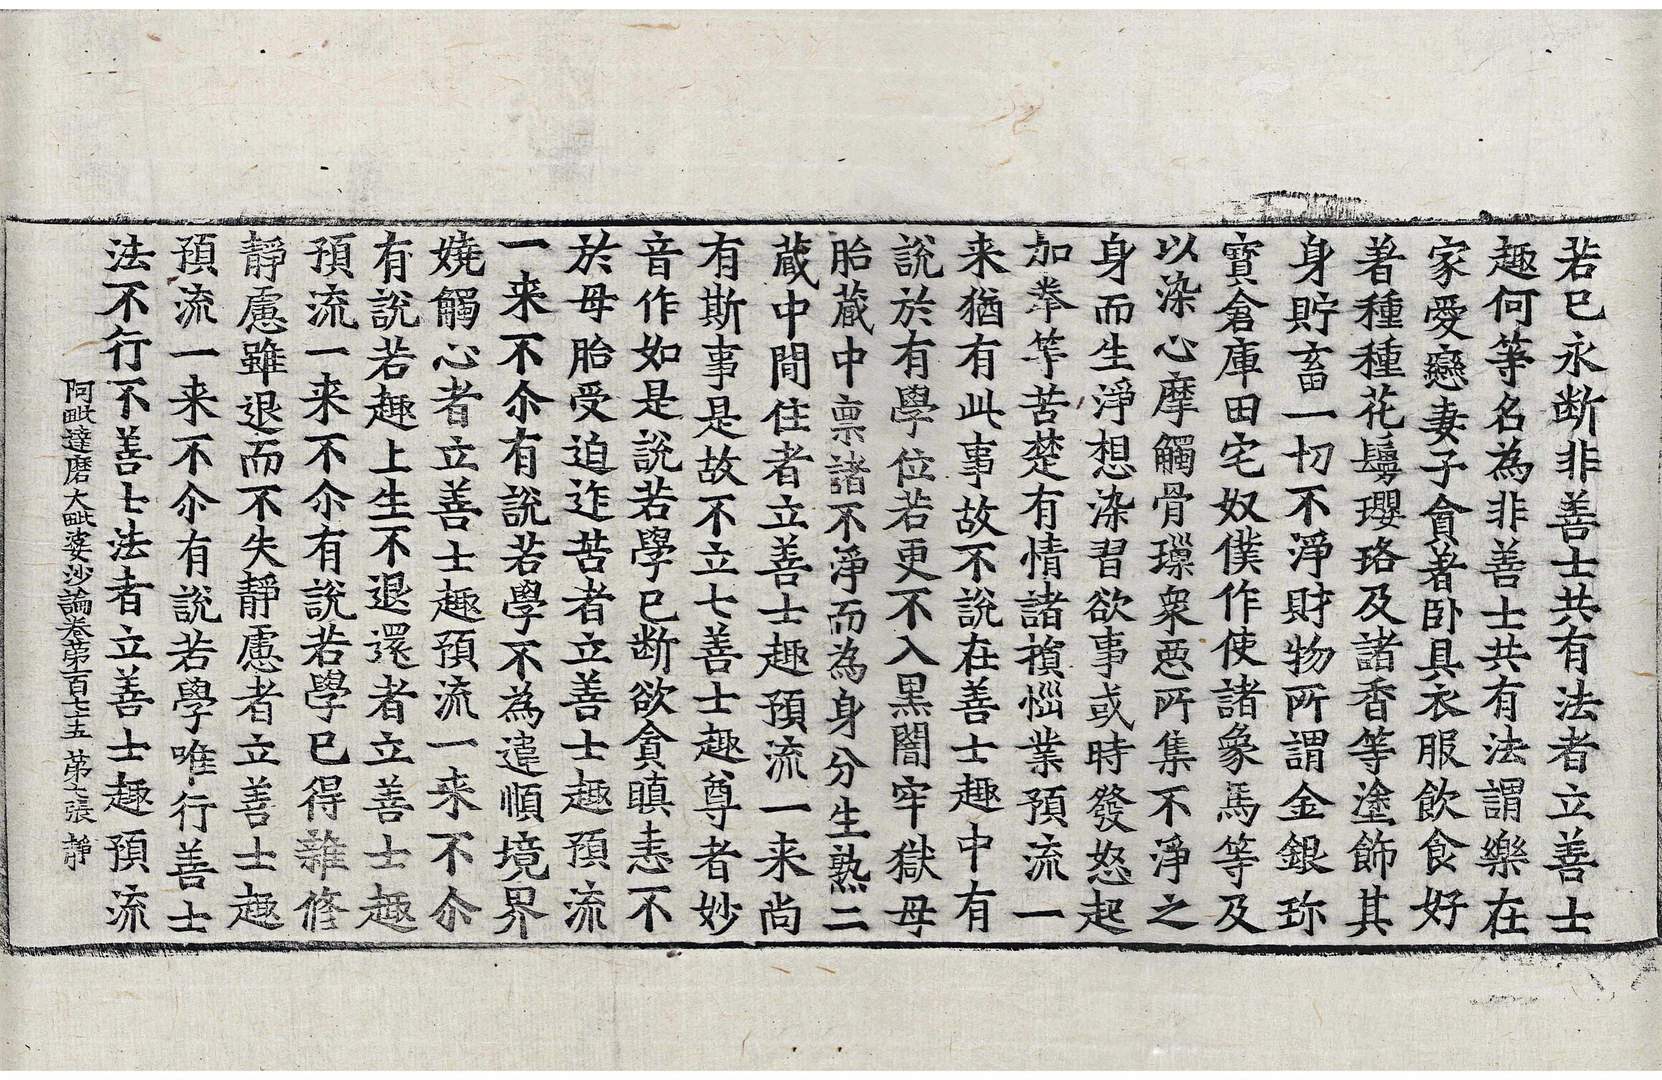 若已永断非善士共有法者立善士
趣何等名為非善士共有法謂樂在
家愛戀妻子貪著卧具衣服飲食好
著種種花鬘瓔珞及諸香等塗飾其
身貯畜一切不淨財物所謂金銀珎
寳倉庫田宅奴僕作使諸象馬等及
以染心摩觸骨璅衆惡所集不淨之
身而生淨想染習欲事或時發怒起
加拳等苦楚有情諸損惱業預流一
来猶有此事故不說在善士趣中有
說於有學位若更不入黒闇牢獄母
胎蔵中禀諸不淨而為身分生熟二
蔵中間住者立善士趣預流一来尚
有斯事是故不立七善士趣尊者妙
音作如是說若學已断欲貪瞋恚不
於母胎受迫迮苦者立善士趣預流
一来不尒有說若學不為違順境界
嬈觸心者立善士趣預流一来不尒
有說若趣上生不退還者立善士趣
預流一来不尒有說若學已得雜修
靜慮雖退而不失靜慮者立善士趣
預流一来不尒有說若學唯行善士
法不行不善士法者立善士趣預流
阿毗達磨大毗婆沙論卷第一百七十五 第七張 靜